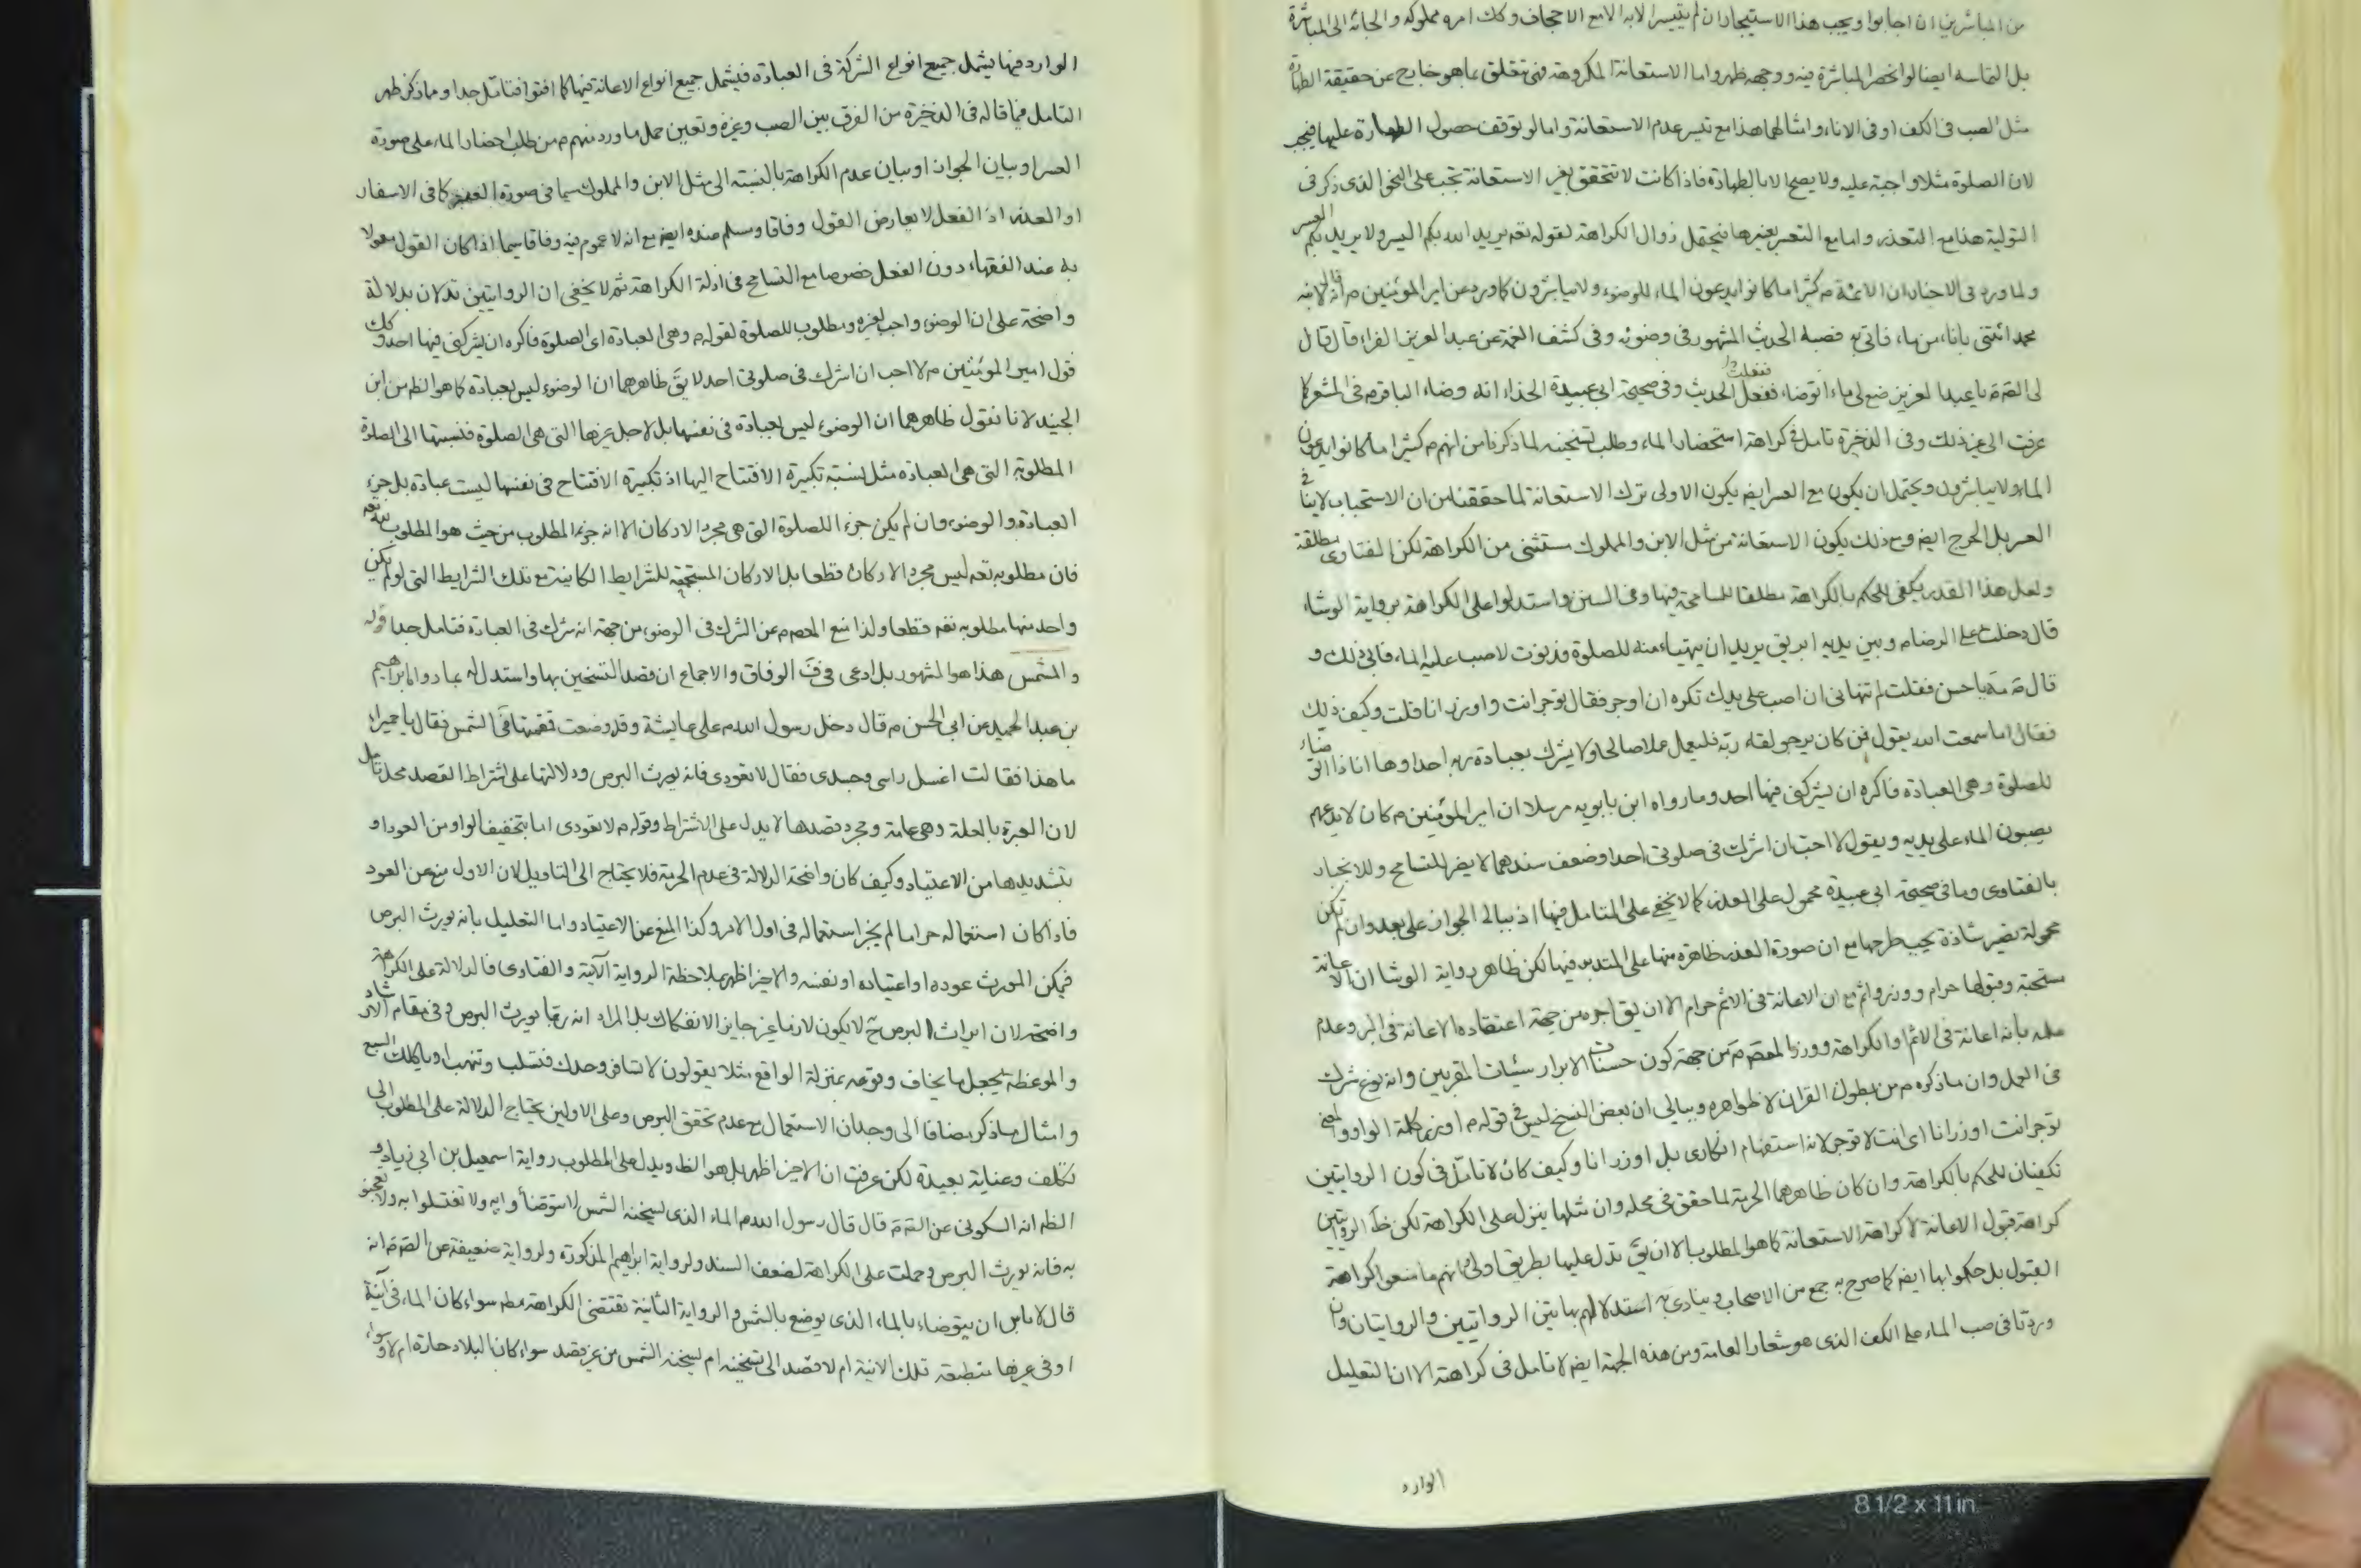 من المباشرين ان اجابوا ويجب هذا الاستيجار ان لم يتيسر الا به الا مع الاجحاف وكك امره مملوكه والجائه الى المباشرة
بل التماسه ايضا لو انحصر المباشرة فيه ووجهه ظهر واما الاستعانة المكروهة فهى تعلق بما هو خارج عن حقيقة الطهارة
مثل الصب فى الكف او فى الاناء وامثالهما هذا مع تيسر عدم الاستعانة واما لو توقف حصول الطهارة عليها فيجب
لان الصلوة مثلا واجبة عليه ولا يصح الا بالطهارة فاذا كانت لا تتحقق بغير الاستعانة تجب على النحو الذى ذكر فى
التولية هذا مع التعذر واما مع التعسر بغيرها فيحتمل زوال الكراهة لقوله تعه يريد الله بكم اليسر ولا يريد بكم العسر
ولما ورد فى الاخبار ان الائمة م كثيرا ما كانوا يدعون الماء للوضوء ولا يباشرون كما ورد عن امير المؤمنين م انه قال لابنه
محمد ائتنى باناء من ماء فاتى به فصبه الحديث المشهور فى وضوئه وفى كشف الغمة عن عبد العزيز القراء قال قال
لى الصم يا عبد العزيز ضع لى ماء اتوضاء ففعلت الحديث وفى صحيحة ابى عبيدة الحذاء انه وضاء الباقر م فى المشعر كما
عرفت الى غير ذلك وفى الذخيرة تامل فى كراهة استحضار الماء وطلب تسخينه لما ذكرنا من انهم م كثيرا ما كانوا يدعون
الماء ولا يباشرون ويحتمل ان يكون مع العسر ايضم يكون الاولى ترك الاستعانة لما حققنا من ان الاستحباب لا ينافى
العسر بل الحرج ايضم ومع ذلك يكون الاستعانة من مثل الابن والمملوك مستثنى من الكراهة لكن الفتاوى مطلقة
ولعل هذا القدر يكفى للحكم بالكراهة مطلقا للمسامحة فيها وفى السنن واستدلوا على الكراهة برواية الوشاء
قال دخلت على الرضا م وبين يديه ابريق يريد ان يتهياء منه للصلوة فدنوت لاصب عليه الماء فابى ذلك و
قال م مه يا حسن فقلت لم تنهانى ان اصب على يدك تكره ان اوجر فقال توجر انت واوزر انا قلت وكيف ذلك
فقال اما سمعت الله يقول فمن كان يرجو لقاء ربه فليعمل عملا صالحا ولا يشرك بعبادة ربه احدا وها انا ذا اتوضاء
للصلوة وهى العبادة فاكره ان يشركنى فيها احد وما رواه ابن بابويه مرسلا ان امير المؤمنين م كان لا يدعهم
يصبون الماء على يديه ويقول لا احب ان اشرك فى صلوتى احدا وضعف سندهما لا يضر للتسامح وللانجبار
بالفتاوى وما فى صحيحة ابى عبيدة محمول على العذر كما لا يخفى على المتامل فيها اذ ببالى الجواز على بعد وان لم تكن
محمولة تصير شاذة يجب طرحها مع ان صورة العذر ظاهرة منها على المتدبر فيها لكن ظاهر رواية الوشا ان الاعانة
مستحبة وقبولها حرام ووزر واثم مع ان الاعانة فى الاثم حرام الا ان يق اجره من جهة اعتقاده الاعانة فى البر وعدم
علمه بانه اعانة فى الاثم او الكراهة ووزر المعصم م من جهة كون حسنات الابرار سيئات المقربين وانه نوع شرك
فى العمل وان ما ذكره م من بطون القران لا ظواهره وببالى ان بعض النسخ ليس فى قوله م اوزر كلمة الواو والمعنى
توجر انت اوزر انا اى انت لا توجر لانه استفهام انكارى بل اوزر انا وكيف كان لا تامل فى كون الروايتين
تكفيان للحكم بالكراهة وان كان ظاهرهما الحرمة لما حقق فى محله وان مثلها ينزل على الكراهة لكن ظ الروايتين
كراهة قبول الاعانة لا كراهة الاستعانة كما هو المطلوب الا ان يق تدل عليها بطريق اولى لانهم ما منعوا كراهة
القبول بل حكموا بها ايضم كما صرح به جمع من الاصحاب وينادى به استدلالهم بهاتين الروايتين والروايتان وان
وردتا فى صب الماء على الكف الذى هو شعار العامة ومن هذه الجهة ايضم لا تامل فى كراهته الا ان التعليل
الوارد
الوارد فيها يشمل جميع انواع الشركة فى العبادة فيشمل جميع انواع الاعانة فيها كما افتوا فتامل جدا ومما ذكر ظهر
التامل فيما قاله فى الذخيرة من الفرق بين الصب وغيره وتعين حمل ما ورد منهم م من طلب احضار الماء على صورة
العسر او بيان الجواز او بيان عدم الكراهة بالنسبة الى مثل الابن والمملوك سيما فى صورة العذر كما فى الاسفار
او العذر اذ الفعل لا يعارض القول وفاقا ومسلم عنده ايضم مع انه لا عموم فيه وفاقا سيما اذا كان القول معولا
به عند الفقهاء دون الفعل خصوصا مع التسامح فى ادلة الكراهة ثم لا يخفى ان الروايتين تدلان بدلالة
واضحة على ان الوضوء واجب لغيره ومطلوب للصلوة لقوله م وهى العبادة اى الصلوة فاكره ان يشركنى فيها احد وكك
قول امير المؤمنين م لا احب ان اشرك فى صلوتى احد لا يق ظاهرهما ان الوضوء ليس بعبادة كما هو الظم من ابن
الجنيد لانا نقول ظاهرهما ان الوضوء ليس بعبادة فى نفسها بل لاجل غيرها التى هى الصلوة فنسبتها الى الصلوة
المطلوبة التى هى العبادة مثل نسبة تكبيرة الافتتاح اليها اذ تكبيرة الافتتاح فى نفسها ليست عبادة بل جزء
العبادة والوضوء وان لم يكن جزء اللصلوة التى هى مجرد الاركان الا انه جزء المطلوب من حيث هو المطلوب لله تعه
فان مطلوبه تعه ليس مجرد الاركان قطعا بل الاركان المستجمعة للشرايط الكاينة مع تلك الشرايط التى لو لم يكن
واحد منها مطلوبه تعه قطعا ولذا منع المعصم م عن الشرك فى الوضوء من جهة انه شرك فى العبادة فتامل جدا قوله
والمشمس هذا هو المشهور بل ادعى فى ف الوفاق والاجماع ان قصد التسخين بها واستدل له بما رواه ابراهيم
بن عبد الحميد عن ابى الحسن م قال دخل رسول الله م على عايشة وقد وضعت قمقمتها فى الشمس فقال يا حميراء
ما هذا فقالت اغسل راسى وجسدى فقال لا تعودى فانه يورث البرص ودلالتها على اشتراط القصد محل تامل
لان العبرة بالعلة وهى عامة ومجرد قصدها لا يدل على الاشتراط وقوله م لا تعودى اما بتخفيف الواو من العود او
بتشديدها من الاعتياد وكيف كان واضحة الدلالة فى عدم الحرمة فلا يحتاج الى التاويل لان الاول منع عن العود
فاذا كان استعماله حراما لم يجز استعماله فى اول الامر وكذا المنع عن الاعتياد واما التعليل بانه يورث البرص
فيمكن المورث عوده او اعتياده او نفسه والاخير اظهر بملاحظة الرواية الآتية والفتاوى فالدلالة على الكراهة
واضحة لان ايراث البرص ح لا يكون لازما غير جايز الانفكاك بل المراد انه ربما يورث البرص وفى مقام الارشاد
والموعظة يجعل ما يخاف وقوعه بمنزلة الواقع مثلا يقولون لا تسافر وحدك فتسلب وتنهب او ياكلك السبع
وامثال ما ذكر مضافا الى وجدان الاستعمال مع عدم تحقق البرص وعلى الاولين يحتاج الدلالة على المطلوب الى
تكلف وعناية بعيدة لكن عرفت ان الاخير اظهر بل هو الظ ويدل على المطلوب رواية اسمعيل بن ابى زياد و
الظم انه السكونى عن الصم م قال قال رسول الله م الماء الذى يسخنه الشمس لا تتوضأوا به ولا تغتسلوا به ولا تعجنوا
به فانه يورث البرص وحملت على الكراهة لضعف السند ولرواية ابراهيم المذكورة ولرواية ضعيفة عن الصم م انه
قال لا باس ان يتوضاء بالماء الذى يوضع بالشمس والرواية الثانية تقتضى الكراهة مطم سواء كان الماء فى آنية
او فى غيرها منطبعة تلك الانية ام لا قصد الى تسخينه ام يسخنه الشمس من غير قصد سواء كان البلاد حارة ام لا وسواء
8 1/2 x 11 in.